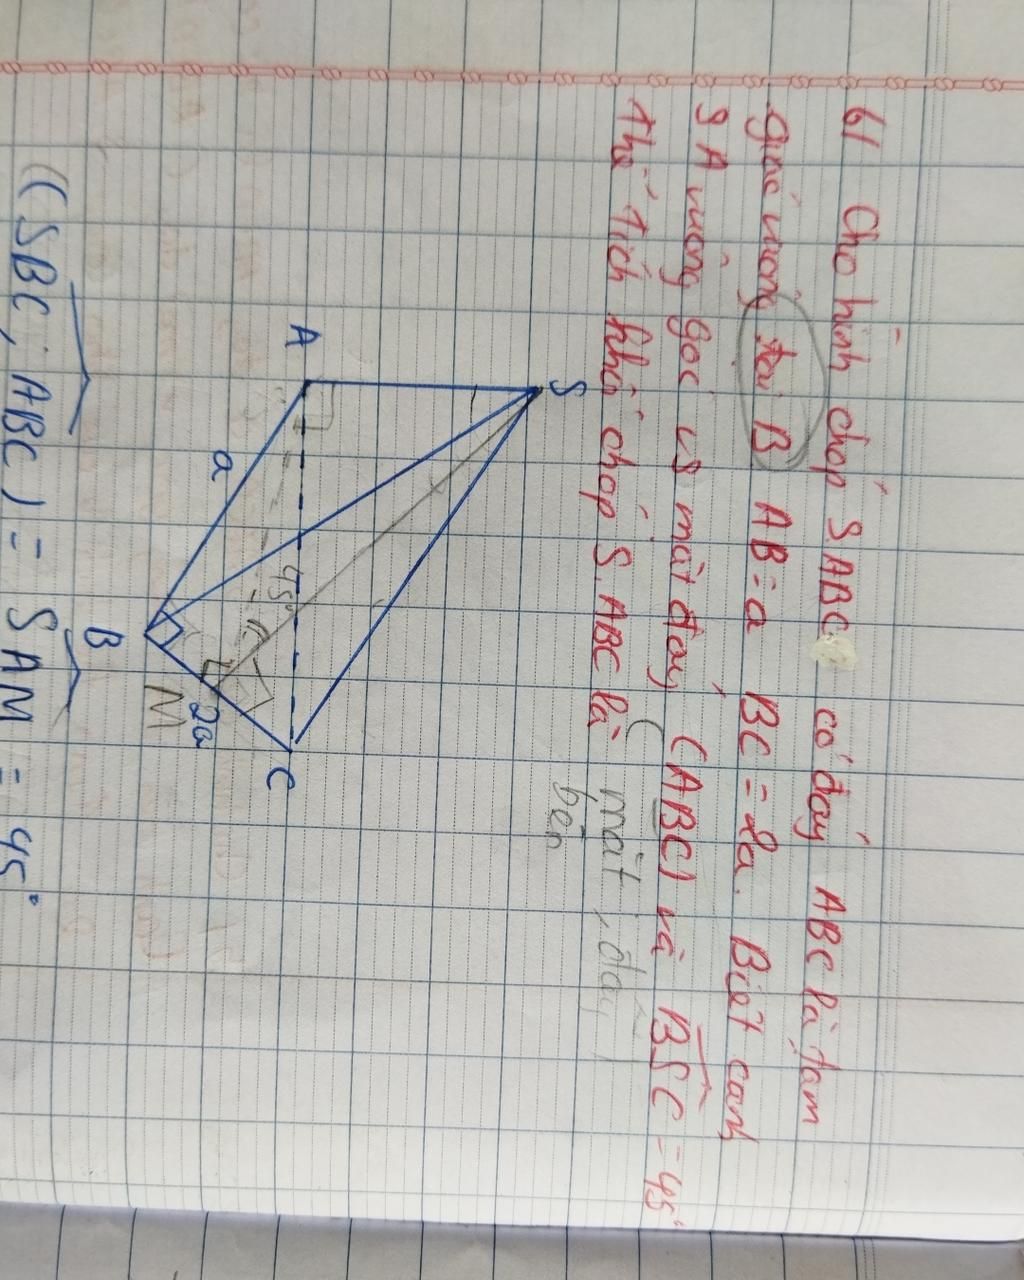 61 Cho hình chóp SABC có đáy ABC là tam
giác vuông tại B AB = a BC = 2a. Biết cạnh
SA vuông góc vs mặt đáy (ABC) và BSC = 45°
Thể tích khối chóp S.ABC là
mặt, đáy
bên
S
A
a
45°
B
M
2a
C
(SBC; ABC) = SAM = 45°